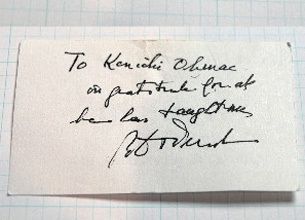 To Kenichi Ohmae
in gratitude for all
he has taught me